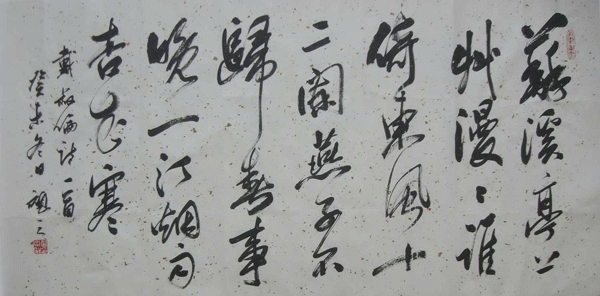 蘇溪亭上
艸漫〻誰
倚東風十
二闌燕子不
歸春事
晚一汀烟雨
杏花寒
戴叔倫詩一首
癸未冬日